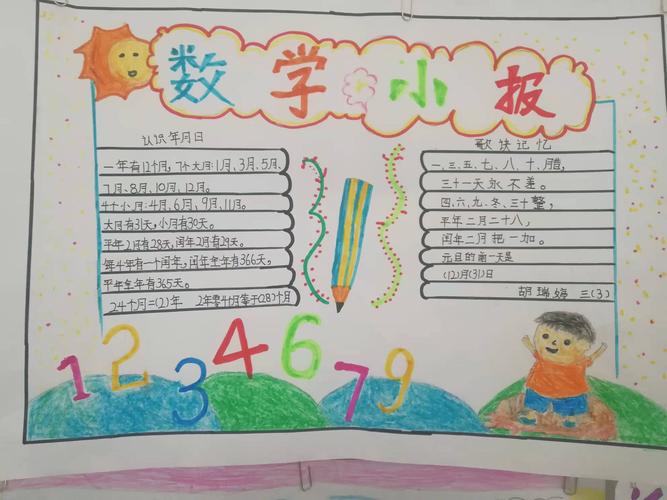 数学小报
认识年月日
一年有12个月，7个大月：1月、3月、5月、
7月、8月、10月、12月。
4个小月：4月、6月、9月、11月。
大月有31天，小月有30天。
平年2月有28天，闰年2月有29天。
每4年有一个闰年，闰年全年有366天。
平年全年有365天。
24个月=(2)年 2年零4个月等于(28)个月
歌诀记忆
一、三、五、七、八、十、腊，
三十一天永不差。
四、六、九、冬、三十整，
平年二月二十八，
闰年二月把一加。
元旦的前一天是
(12)月(31)日
胡瑞婷 三(3)
1 2 3 4 6 7 9